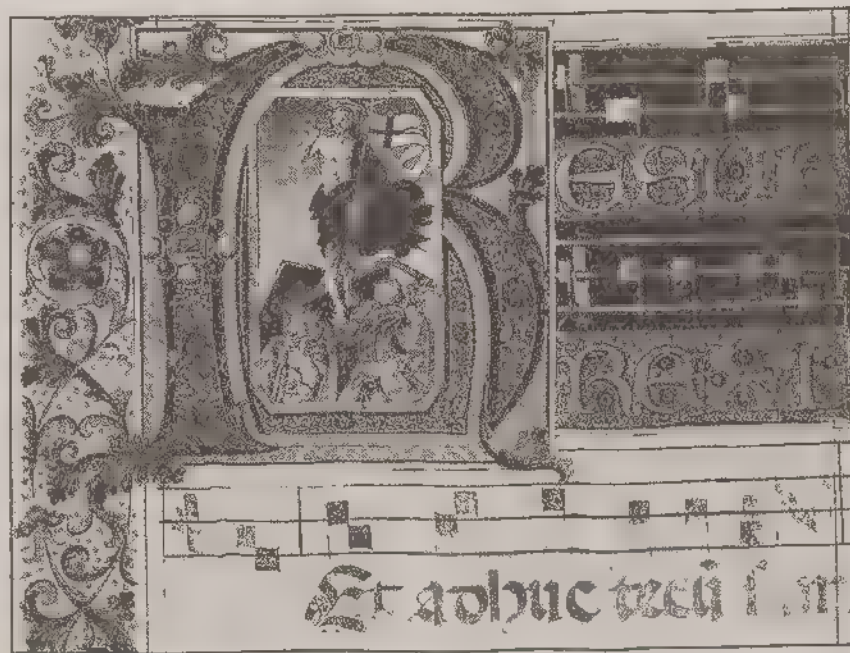 RESUR
REXI
Et adhuc tecū